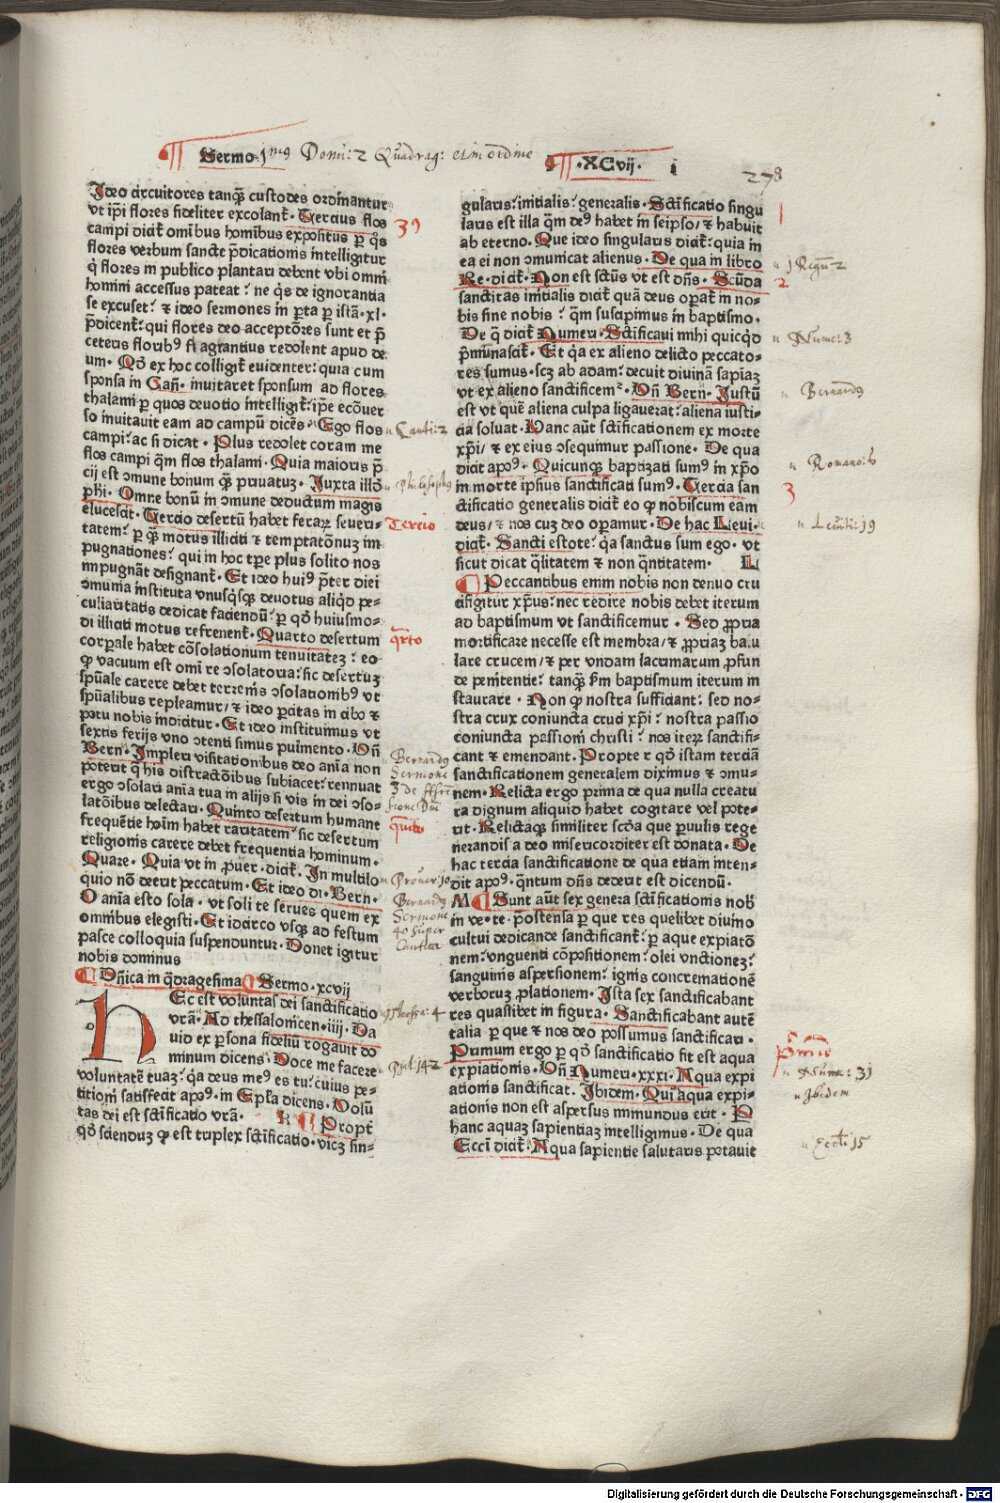 Sermo 1mꝰ Domi: 2 Quadrag: et in ordine
·XCvij· i
278
Ideo circuitores tanqᷓ custodes ordinantur
vt ip̄i flores fideliter excolant᷑. Tercius flos
campi dicit᷑ omībus hominībus expositus ꝑ qͦs
flores verbum sancte p̄dicationis intelligitur
q̇ flores in publico plantari debent vbi omni
homini accessus pateat: ne q̇s de ignorantia
se excuset: ⁊ ideo sermones in ꝑta ꝑ istā .xl.
p̄dicent᷑: qui flores deo acceptōres sunt et p̄
ceteris floribꝰ flagrantius redolent apud de
um. Qđ ex hoc colligit᷑ euidenter: quia cum
sponsa in Can̄. inuitaret sponsum ad flores
thalami ꝑ quos deuotio intelligit᷑: ip̄e ecōuer
so inuitauit eam ad campū dicēs. Ego flos
campi: ac si dicat. Plus redolet coram me
flos campi qͫ flos thalami. Quia maioris p̄
cij est ↄmune bonum qᷓ priuatuʒ. Iuxta illđ
phi. Omne bonū in ↄmune deductum magis
elucescit. Tercio desertū habet feraꝝ seueri-
tatem: ꝑ qᷓ motus illiciti ⁊ temptatōnuʒ im
pugnationes: qui in hoc tꝑe plus solito nos
impugnāt designant᷑. Et ideo huiꝰ p̄ter diei
ↄmunia instituta vnusqͥsqꝫ deuotus aliqͥd pe-
culiaritatis dedicat faciendū: ꝑ qđ huiusmo-
di illiciti motus refrenent᷑. Quarto desertum
corꝑale habet cōsolationum tenuitateʒ: eo
ꝙ vacuum est omī re ↄsolatoria: sic desertuʒ
spūale carere debet terrenis ↄsolationibꝰ vt
spūalibus repleamur/ ⁊ ideo ꝑcitas in cibo ⁊
potu nobis indicitur. Et ideo instituimus vt
sextis ferijs vno ↄtenti simus pulmento. Dn̄
Bern̄. Impleri visitationibus deo aīa non
poterit q̄ his distractōibus subiacet: rennuat
ergo ↄsolari aīa tua in alijs si vis in dei ↄso-
latōibus delectari. Quinto desertum humane
frequētie hoīm habet raritatem: sic desertum
religionis carere debet frequentia hominum.
Quare. Quia vt in ꝓuer. dicit᷑. In multilo
quio nō deerit peccatum. Et ideo di. Bern.
O aīa esto sola. vt soli te serues quem ex
omnibus elegisti. Et idcirco vsqꝫ ad festum
pasce colloquia suspenduntur. Donet igitur
nobis dominus
Dn̄ica in q̄dragesima Sermo .xcvij
HEc est voluntas dei sanctificatio
vr̄a. Ad thessalonicen .iiij. Da
uid ex ꝑsona fideliū rogauit do
minum dicens: Doce me facere
voluntatē tuaʒ: q̇a deus meꝰ es tu: cuius pe-
titioni satisfecit apoꝰ. in Epl̄a dicens. Uolū
tas dei est sctīficatio vr̄a. K Propt᷑
qđ sciendūʒ ꝙ est triplex sctīficatio. vicʒ sin-
3ꝰ
Canti: 2
Philosophꝰ
Tercio
qᷓrto
Bernardꝰ
Sermone
quinto
Prouer: 10
Bernardꝰ
Sermone
40 super
Cantica
Thessa: 4
Psal: 142
gularis: initialis: generalis. Sctīficatio singu
laris est illa qͫ deꝰ habet in seipso/ ⁊ habuit
ab eterno. Que ideo singularis dicit᷑: quia in
ea ei non ↄmunicat alienus. De qua in libro
Re. dicit᷑. Non est sctūs vt est dn̄s. Scūda
sanctitas initialis dicit᷑ quā deus oꝑat᷑ in no-
bis sine nobis: qͫ suscipimus in baptismo.
De q̄ dicit᷑ Numeri. Sctīficaui mihi quicqͥd
p̄mū nascit᷑. Et q̇a ex alieno delicto peccato-
res sumus. scʒ ab adam: decuit diuinā sapiaʒ
vt ex alieno sanctificemꝰ. Dn̄ Bern. Iustū
est vt quē aliena culpa ligauerat: aliena iusti-
cia soluat. Hanc aūt sctīficationem ex morte
xp̄i/ ⁊ ex eius ↄsequimur passione. De qua
dicit apoꝰ. Quicunqꝫ baptizati sumꝰ in xp̄o
in morte ipsius sanctificati sumꝰ. Tercia san
ctificatio generalis dicit᷑ eo ꝙ nobiscum eam
deus/ ⁊ nos cuʒ deo oꝑamur. De hac Leui.
dicit᷑. Sancti estote: q̇a sanctus sum ego. vt
sicut dicat q̄litatem ⁊ non q̄ntitatem. L
Peccantibus enim nobis non denuo cru
cifigitur xp̄us: nec redire nobis debet iterum
ad baptismum vt sanctificemur. Sed ꝓpria
mortificare necesse est membra/ ⁊ ꝓpriaʒ baiu
lare crucem/ ⁊ per vndam lacrimarum ꝓfun
de penitentie: tanqᷓ ẜm baptismum iterum in
staurare. Non ꝙ nostra sufficiant: sed no-
stra crux coniuncta cruci xp̄i: nostra passio
coniuncta passioni christi: nos iteꝝ sanctifi-
cant ⁊ emendant. Propter qđ istam terciā
sanctificationem generalem diximus ⁊ ↄmu-
nem. Relicta ergo prima de qua nulla creatu
ra dignum aliquid habet cogitare vel pote-
rit. Relictaqꝫ similiter scđa que ꝑuulis rege
nerandis a deo misericorditer est donata. De
hac tercia sanctificatione de qua etiam inten-
dit apoꝰ. q̄ntum dn̄s dederit est dicendū.
M Sunt aūt sex genera sctīficationis nob̄
in ve.te. p̄ostensa ꝑ que res quelibet diuino
cultui dedicande sanctificant᷑: ꝑ aque expiatō
nem: vnguenti cōpositionem: olei vnctioneʒ:
sanguinis aspersionem: ignis concremationē
verboruʒ ꝓlationem. Ista sex sanctificabant
res quaslibet in figura. Sanctificabant autē
talia ꝑ que ⁊ nos deo possumus sanctificari.
Primum ergo ꝑ qđ sanctificatio fit est aqua
expiationis. Dn̄ Numeri .xxxi. Aqua expi
ationis sanctificat. Ibidem. Qui aqua expi-
ationis non est aspersus immundus erit. P
hanc aquaʒ sapientiaʒ intelligimus. De qua
Ecci dicit᷑. Aqua sapientie salutaris potauit
1
1 Regū 2
2
Nume: 3
Bernardꝰ
Romano: 6
3
Leuiti: 19
Primū
Nume: 31
Ibidem
Eccl. 15
Digitalisierung gefördert durch die Deutsche Forschungsgemeinschaft - DFG